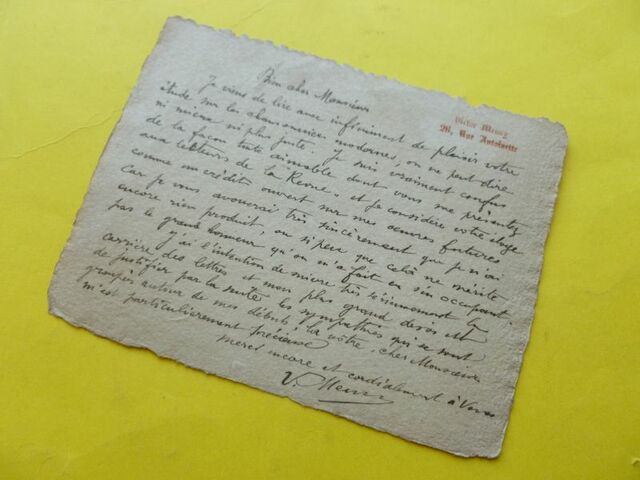 Victor Meusy
26, Rue Antoinette
Bien cher Monsieur
Je viens de lire avec infiniment de plaisir votre
étude sur les chansonniers modernes, on ne peut dire
ni mieux ni plus juste. Je suis vraiment confus
de la façon toute aimable dont vous me présentez
aux lecteurs de la Revue, et je considère votre éloge
comme un crédit ouvert sur mes œuvres futures
car je vous avouerai très sincèrement que je n'ai
encore rien produit, ou si peu que cela ne mérite
pas le grand honneur qu'on m'a fait en s'en occupant.
J'ai l'intention de suivre très sérieusement la
carrière des lettres et mon plus grand désir est
de justifier par la suite les sympathies qui se sont
groupées autour de mes débuts; la vôtre, cher Monsieur
m'est particulièrement précieuse
Merci encore et cordialement à vous
V. Meusy